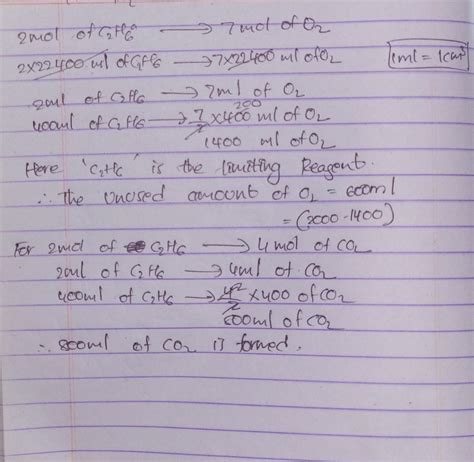 2mol of C2H6 ⟶ 7mol of O2
2×22400 ml of C2H6 ⟶ 7×22400 ml of O2
1ml = 1cm³
2ml of C2H6 ⟶ 7ml of O2
400ml of C2H6 ⟶ 7/2 × 400 200 ml of O2
1400 ml of O2
Here 'C2H6' is the limiting Reagent.
∴ The unused amount of O2 = 600ml
= (2000-1400)
For 2mol of C2H6 ⟶ 4 mol of CO2
2ml of C2H6 ⟶ 4ml of CO2
400ml of C2H6 ⟶ 4/2 2 × 400 of CO2
800ml of CO2
∴ 800ml of CO2 is formed.